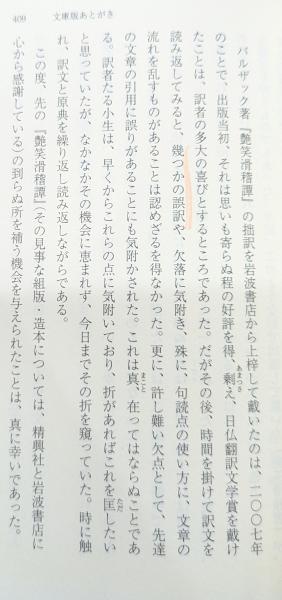 409　文庫版あとがき
バルザック著『艶笑滑稽譚』の拙訳を岩波書店から上梓して戴いたのは、二〇〇七年
のことで、出版当初、それは思いも寄らぬ程の好評を得、剰え、日仏翻訳文学賞を戴け
たことは、訳者の多大の喜びとするところであった。だがその後、時間を掛けて訳文を
読み返してみると、幾つかの誤訳や、欠落に気附き、殊に、句読点の使い方に、文章の
流れを乱すものがあることは認めざるを得なかった。更に、許し難い欠点として、先達
の文章の引用に誤りがあることにも気附かされた。これは真、在ってはならぬことであ
る。訳者たる小生は、早くからこれらの点に気附いており、折があればこれを匡したい
と思っていたが、なかなかその機会に恵まれず、今日までその折を窺っていた。時に触
れ、訳文と原典を繰り返し読み返しながらである。
この度、先の『艶笑滑稽譚』（その見事な組版・造本については、精興社と岩波書店に
心から感謝している）の到らぬ所を補う機会を与えられたことは、真に幸いであった。